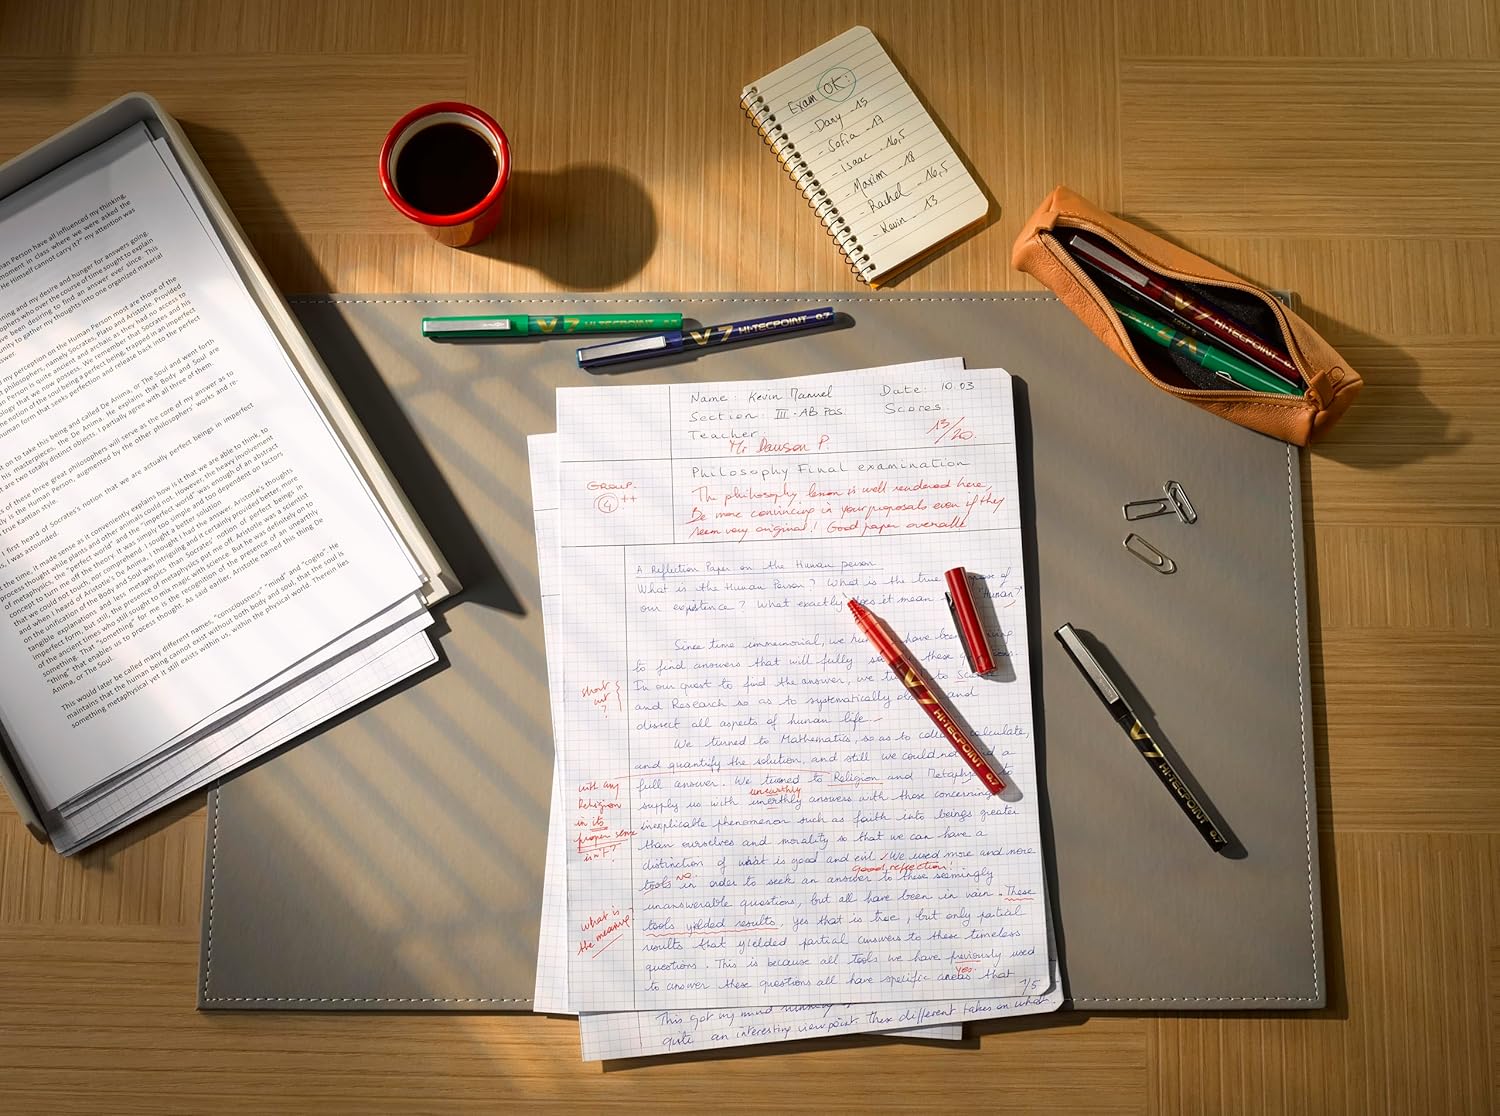 an Person have all influenced my thinking,
moment in class where we were asked the
He Himself cannot carry it?" my attention was
ning and my desire and hunger for answers going.
ophers who over the course of time sought to explain
been desiring to find an answer ever since. This
unity to gather my thoughts into one organized material
swer.
d my perception on the Human Person most are those of the
philosophers, namely Socrates, Plato and Aristotle. Provided
is quite ancient and archaic as they had no access to
ology that we now possess. We remember that Socrates and his
the notion of the soul being a perfect being, trapped in an imperfect
human form that seeks perfection and release back into the perfect
on to take this being and called De Anima, or The Soul and went forth
his masterpieces, the De Anima. He explains that Body and Soul are
are two totally distinct objects. I partially agree with all three of them.
s of these three great philosophers will serve as the core of my answer as to
ly is the Human Person, augmented by the other philosophers' works and re-
true Kantian style.
I first heard of Socrates's notion that we are actually perfect beings in imperfect
s, I was astounded.
the time, it made sense as it conveniently explains how is it that we are able to think, to
process thought while plants and other animals could not. However, the heavy involvement
of metaphysics, the "perfect world" and the "imperfect world" was enough of an abstract
concept to turn me off the theory. It was simply too simple and too dependent on factors
that we could not touch, nor comprehend. I sought a better solution.
and when I heard of Aristotle's De Anima, I thought I had the answer. Aristotle's thoughts
on the unification of the Body and Soul was intriguing and it certainly provided better more
tangible explanations and less metaphysics than Socrates' notion of perfect beings in
imperfect form, but still, the presence of metaphysics put me off. Aristotle was a scientist
of the ancient times who still sought to mix magic with science. But he was definitely on to
something. That "something" for me is the recognition of the presence of an unearthly
"thing" that enables us to process thought. As said earlier, Aristotle named this thing De
Anima, or The Soul.
This would later be called many different names, "consciousness" "mind" and "cogito". He
maintains that the human being cannot exist without both body and soul, that the soul is
something metaphysical yet it still exists within us, within the physical world. Therein lies
Exam OK:
- Dany - 15
- Sofia - 17
- Isaac - 16,5
- Maxim - 18
- Rachel - 16,5
- Kevin - 13
V7 HI-TECPOINT 0.7
V7 HI-TECPOINT 0.7
V7 HI-TECPOINT
V
Name: Kevin Manuel Date: 10.03
Section: III - AB Pas Scores
Teacher
Mr Dawson P. 13/20.
Philosophy Final examination
GROUP.
4 ++
The philosophy lesson is well rendered here,
Be more convincing in your proposals even if they
seem very original! Good paper overall
A Reflection Paper on the Human person
What is the Human Person? What is the true of
our existence? What exactly does it mean "Human?"
Since time immemorial, we have been
to find answers that will fully these
In our quest to find the answer, we to
and Research so as to systematically and
dissect all aspects of human life.
short
cut
?
We turned to Mathematics, so as to calculate,
and quantify the solution, and still we could not a
full answer. We turned to Religion and to
unearthly
supply us with unerthly answers with those concerning
inexplicable phenomenon such as faith into beings greater
than ourselves and morality so that we can have a
distinction of what is good and evil. We used more and more
good reflection!
no.
tools in order to seek an answer to these seemingly
unanswerable questions, but all have been in vain. These
tools yielded results, yes that is true, but only partial
results that yielded partial answers to these timeless
questions. This is because all tools we have previously used
yes.
to answer these questions all have specific areas that
1/5
with any
Religion
in its
proper sense
isn't?
what is
the meaning
This got my mind running
quite an interesting viewpoint. These different takes on what
V7 HI-TECPOINT 0.7
V7 HI-TECPOINT 0.7